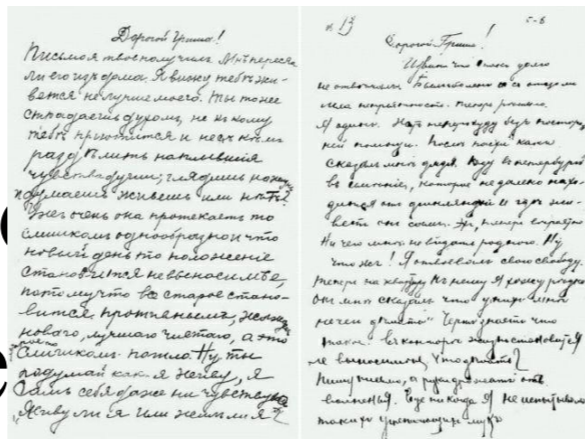 Дорогой Гриша!
Письмо я твое получил. Мне пересла
ли его из дома. Я вижу тебе жи-
вется не лучше моего. Ты тоже
страдаешь духом, не к кому
тебе приютится и не с кем
разделить наплывшия
чувства души; глядишь на жизнь
и думаешь живешь или нет?
Уж очень она протекает то
слишком однообразно и что
новый день то положение
становится невыносимее,
потому что все старое стано-
вится противным, жаждешь
нового, лучшего чистого, а это
старое слишком пошло. Ну ты
подумай как я живу, я
сам себя даже ни чувствую
„Живу ли я или жил ли я?“
13
Дорогой Гриша!
Извини что так долго
не отвечал.
неприятность. Теперь решено.
Я один. Жить теперь буду без посторон
ней помощи. После пасхи как
сказал мне дядя, еду в петербург
в имение, которое недалеко нахо-
дится от
Ни чего мне не видать родного. Ну
что ж! Я отвоевал свою свободу.
Теперь на квартиру к нему я хожу редко
Он мне сказал что у них мне
нечего делать. Черт знает что
такое. В конторе жить становится
не выносимо. Что делать?
Пишу письмо, а руки дрожат от
волненья. Еще никогда я не испытывал
таких угнетающих мук.